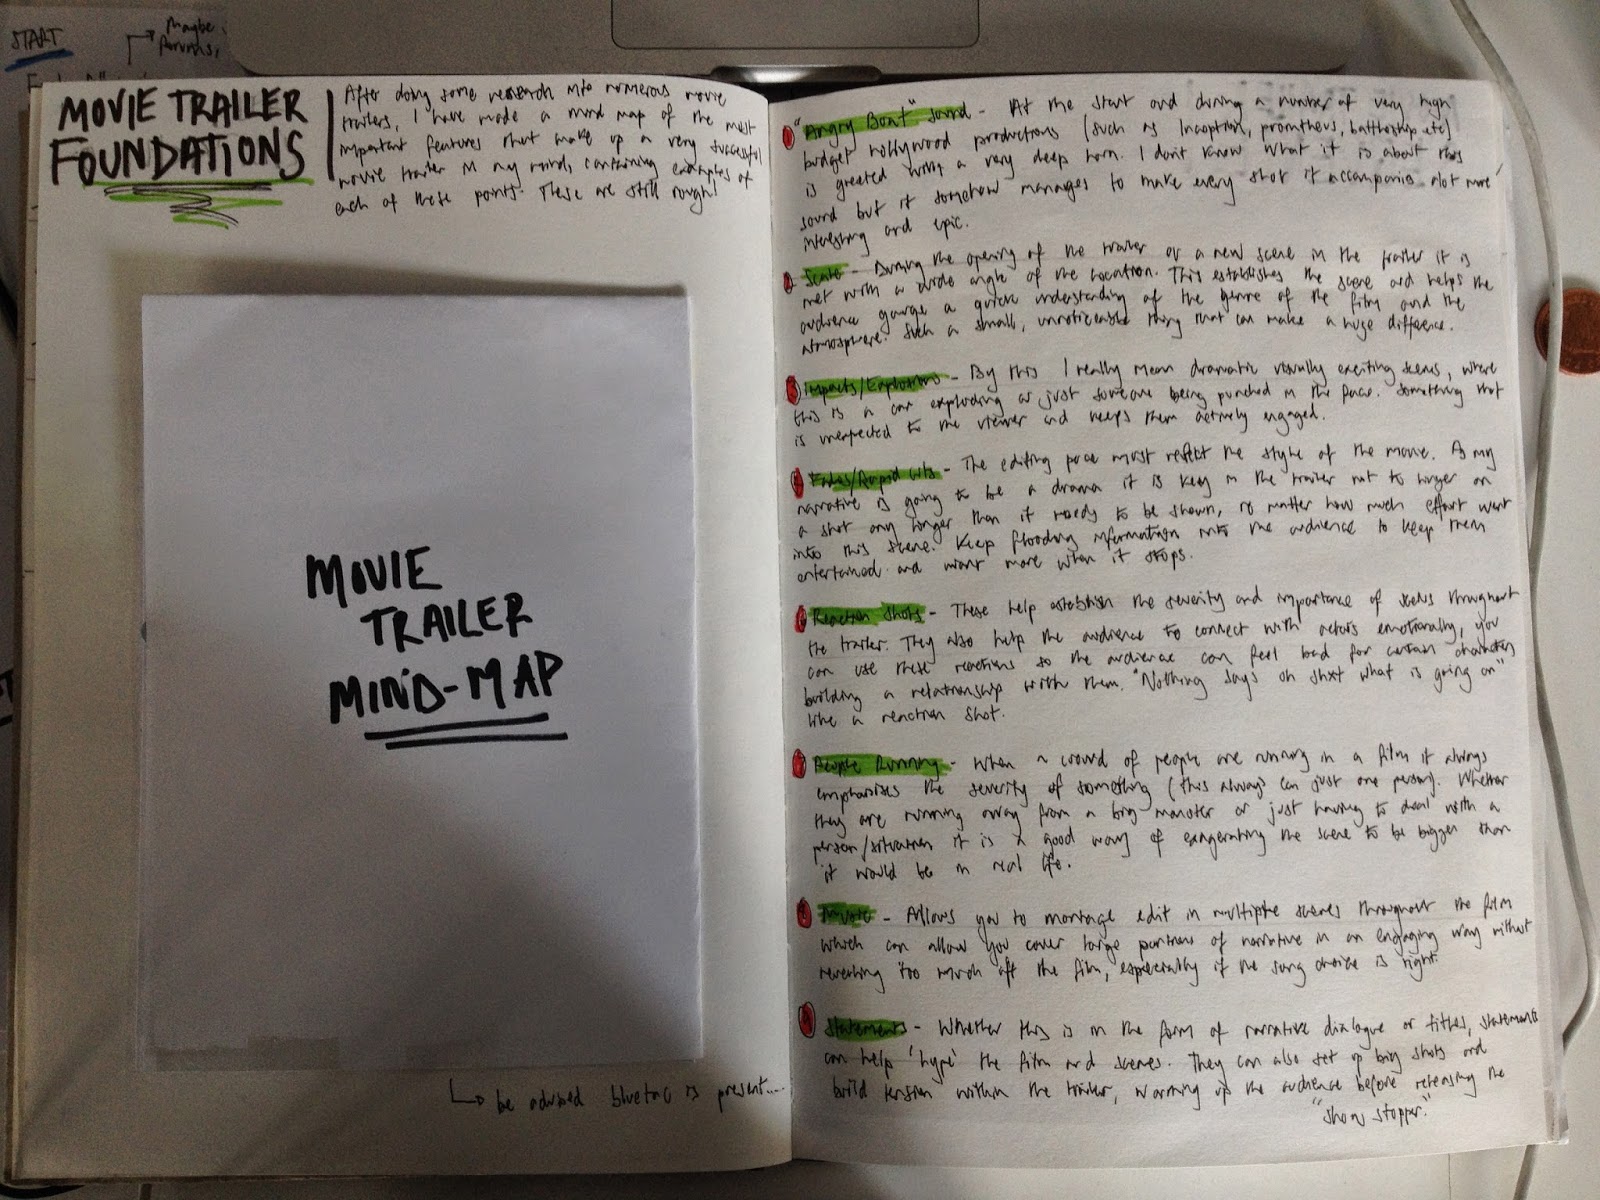 START
Maybe
forums,
MOVIE TRAILER
FOUNDATIONS
After doing some research into numerous movie
trailers, I have made a mind map of the most
important features that make up a very successful
movie trailer in my mind, containing examples of
each of these points. These are still rough!
MOVIE
TRAILER
MIND-MAP
be advised bluetac is present....
1 "Angry Boat" sound - At the start and during a number of very high
budget hollywood productions (such as Inception, prometheus, battleship etc)
is greeted with a very deep horn. I dont know what it is about this
sound but it somehow manages to make every shot it accompanies alot more
interesting and epic.
2 Scale - During the opening of the trailer or a new scene in the trailer it is
met with a wide angle of the location. This establishes the scene and helps the
audience gauge a quick understanding of the genre of the film and the
atmosphere. Such a small, unnoticeable thing that can make a huge difference.
3 Impacts/Explosions - By this I really mean dramatic visually exciting scenes, where
this is a car exploding or just someone being punched in the face. Something that
is unexpected to the viewer and keeps them actively engaged.
4 Fades/Rapid cuts - The editing pace must reflect the style of the movie. As my
narrative is going to be a drama it is key in the trailer not to linger on
a shot any longer than it needs to be shown, no matter how much effort went
into this scene. Keep flooding information into the audience to keep them
entertained and want more when it stops.
Reaction Shots - These help establish the severity and importance of scenes throughout
the trailer. They also help the audience to connect with actors emotionally, you
can use these reactions so the audience can feel bad for certain characters
building a relationship with them. "Nothing says oh shxt what is going on"
like a reaction shot.
People Running - When a crowd of people are running in a film it always
emphasises the severity of something (this always can just one person). Whether
they are running away from a big monster or just having to deal with a
person/situation it is a good way of exagerating the scene to be bigger than
it would be in real life.
Music - Allows you to montage edit in multiple scenes throughout the film
which can allow you cover large portions of narrative in an engaging way without
revealing too much off the film, especially if the song choice is right.
8 Statements - Whether this is in the form of narrative dialogue or titles, statements
can help 'hype' the film and scenes. They can also set up big shots and
build tension within the trailer, warming up the audience before releasing the
"show stopper."